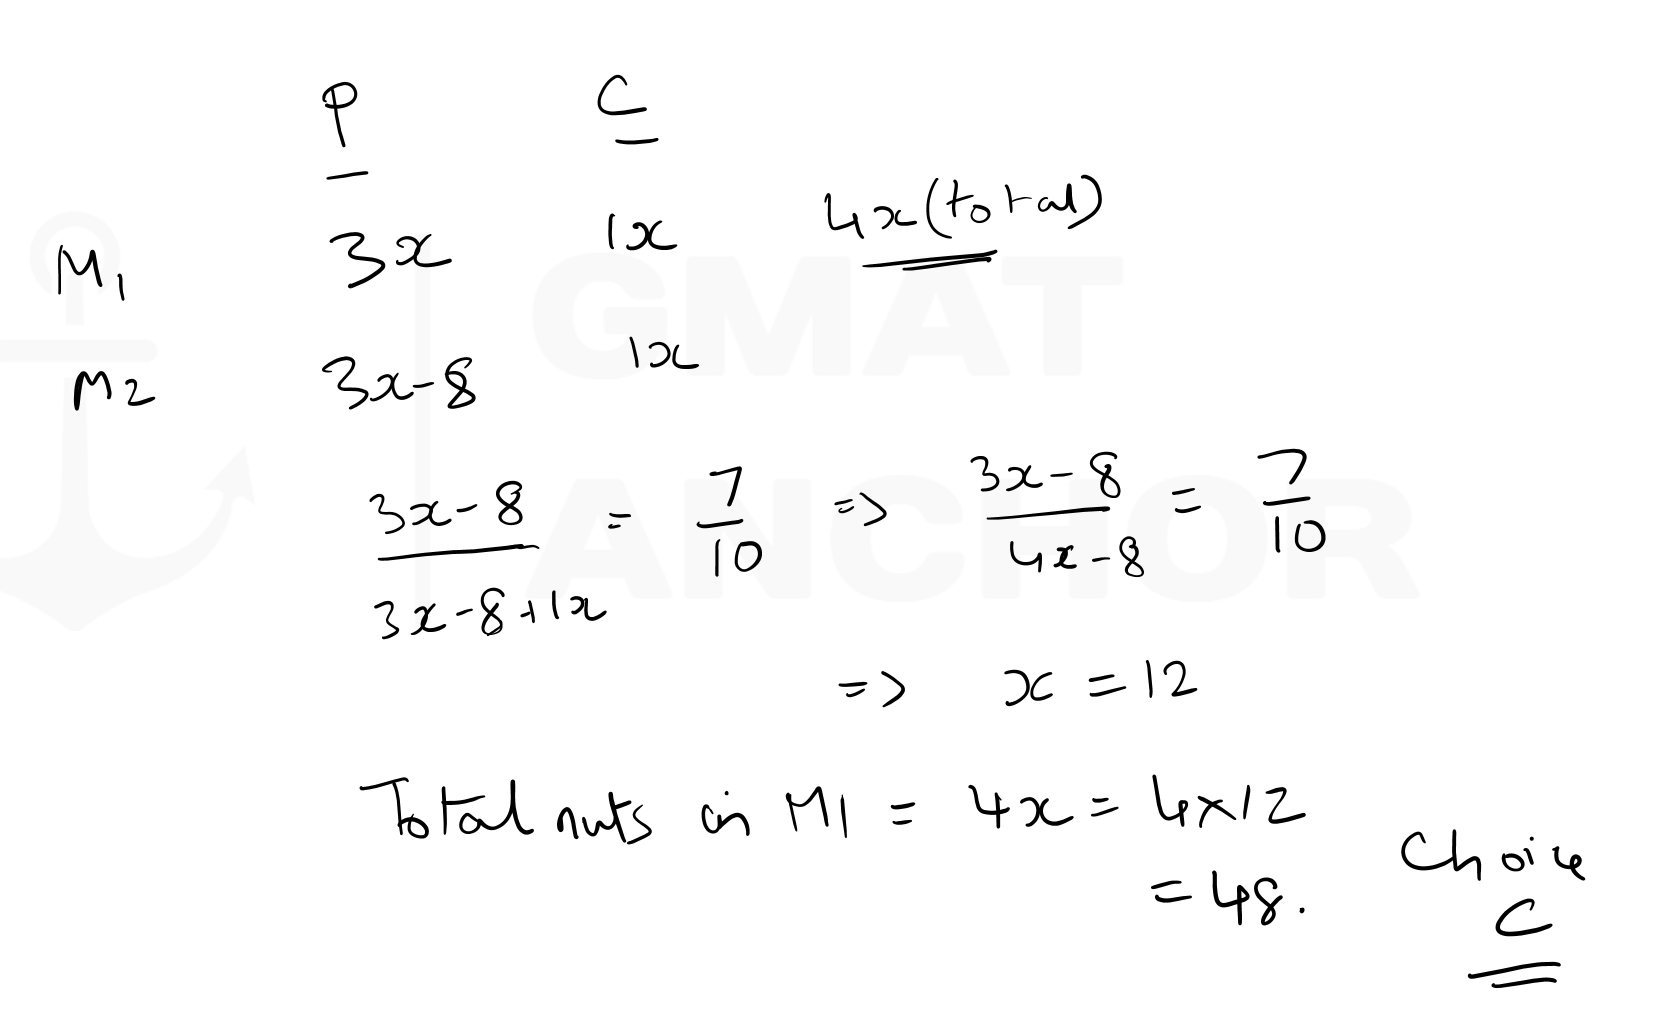 P C
M1 3x 1x 4x(total)
M2 3x-8 1x
3x-8 / 3x-8+1x = 7/10 => 3x-8 / 4x-8 = 7/10
=> x = 12
Total nuts in M1 = 4x = 4x12
= 48.
Choice
C
GMAT
ANCHOR